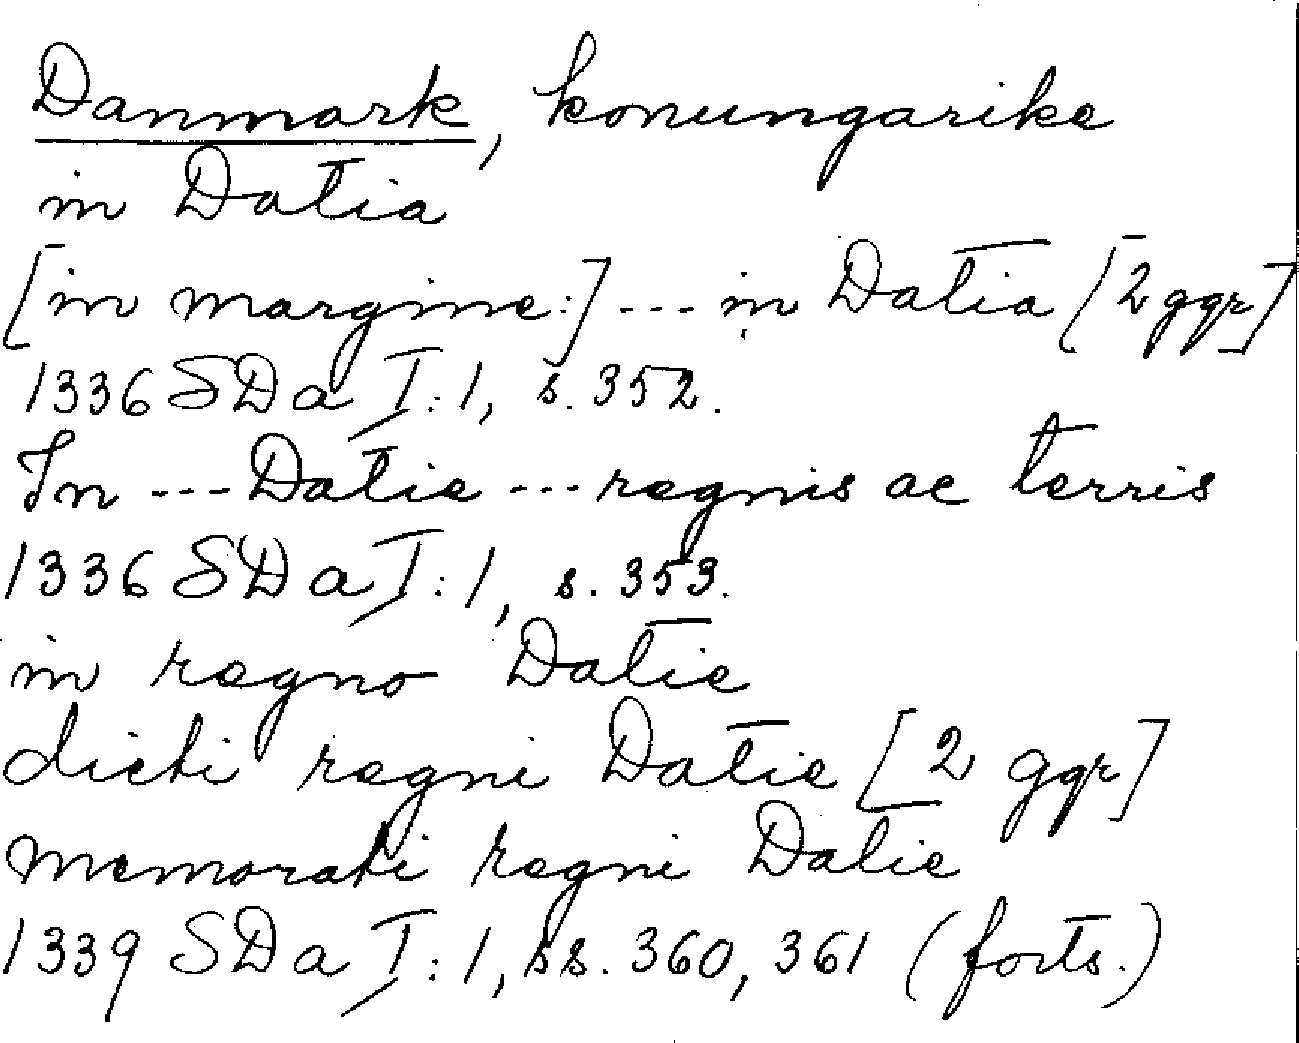 Danmark, konungarike
in Datia
[in margine:] --- in Datia [2 ggr]
1336 SDa I:1, s. 352.
In --- Datie --- regnis ac terris
1336 SDa I:1, s. 353.
in regno Datie
dicti regni Datie [2 ggr]
memorati regni Datie
1339 SDa I:1, ss. 360, 361 (forts.)